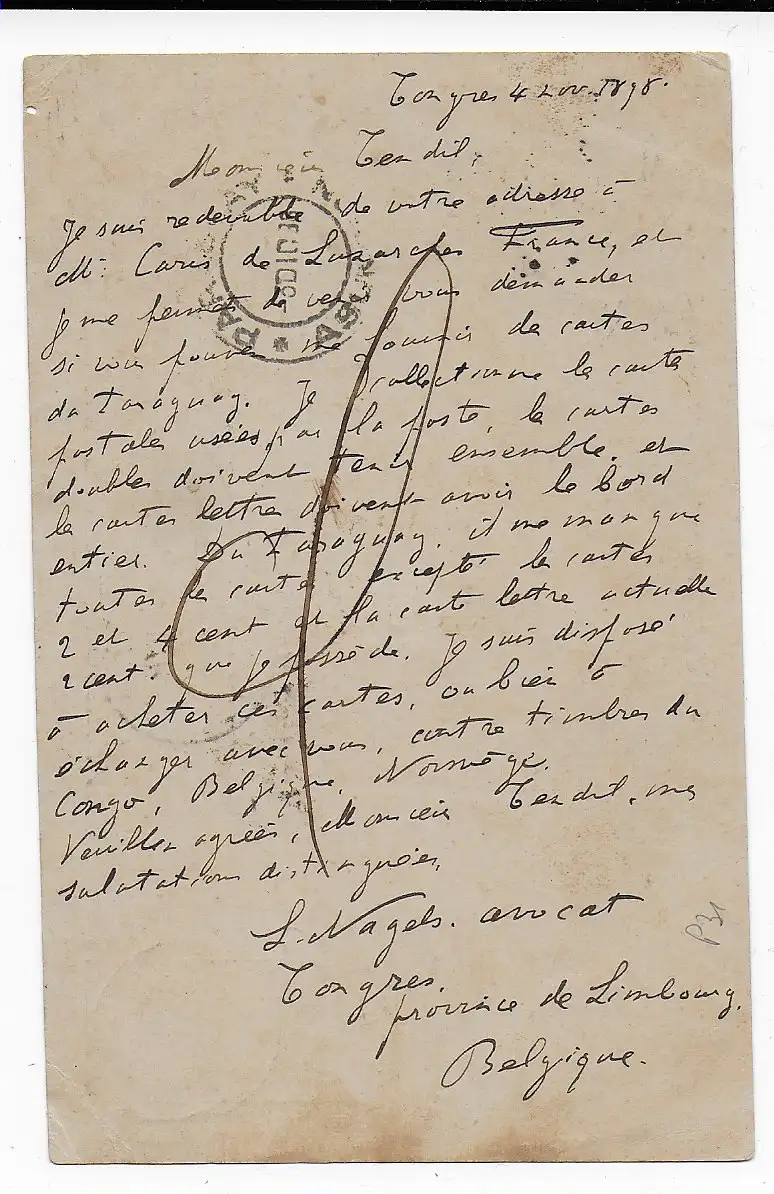 Tongres 4 nov. 1898.
Monsieur Tendil,
Je suis redevable de votre adresse à
Mr. Caris de Luzarches France, et
je me permet de venir vous demander
si vous pouvez me fournir de cartes
du Paraguay. Je collectionne les cartes
postales usées par la poste, les cartes
doubles doivent tenir ensemble, et
les cartes lettre doivent avoir le bord
entier. Du Paraguay, il me manque
toutes les cartes excepté les cartes
2 et 4 cent et la carte lettre actuelle
2 cent. que je possède. Je suis disposé
à acheter ces cartes, ou bien à
échanger avec vous, contre timbres du
Congo, Belgique, Norvège.
Veuillez agréer, Monsieur Tendil, mes
salutations distinguées,
L. Nagels. avocat
Tongres.
province de Limbourg.
Belgique.
P31